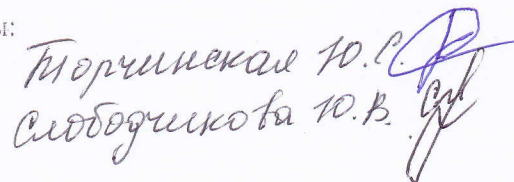 ы:
Торчинская Ю.С.
Слободчикова Ю.В.